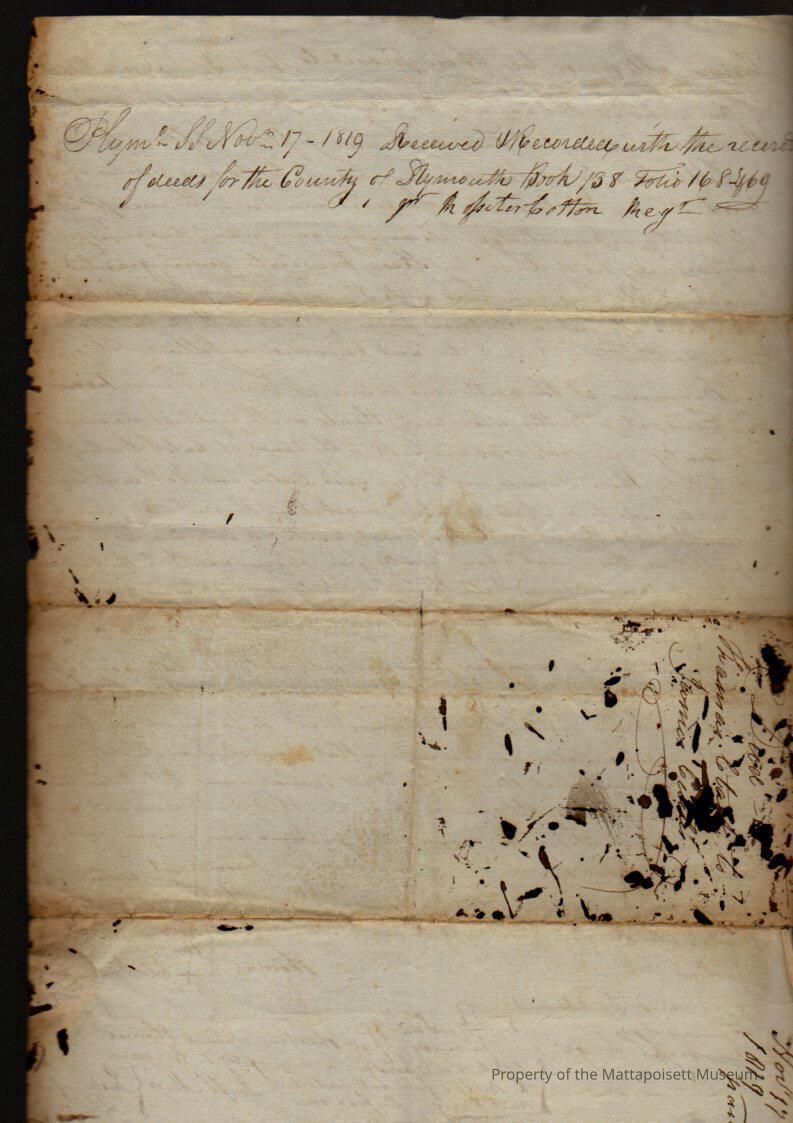 Plymh SS Novm 17 - 1819 Received & Recorded with the records
of deeds for the County of Plymouth Book 138 Folio 168 & 169
pr Rossiter Cotton Regr
Deed
Thomas Clark to
James Clark
Novr 17
1819
Property of the Mattapoisett Museum